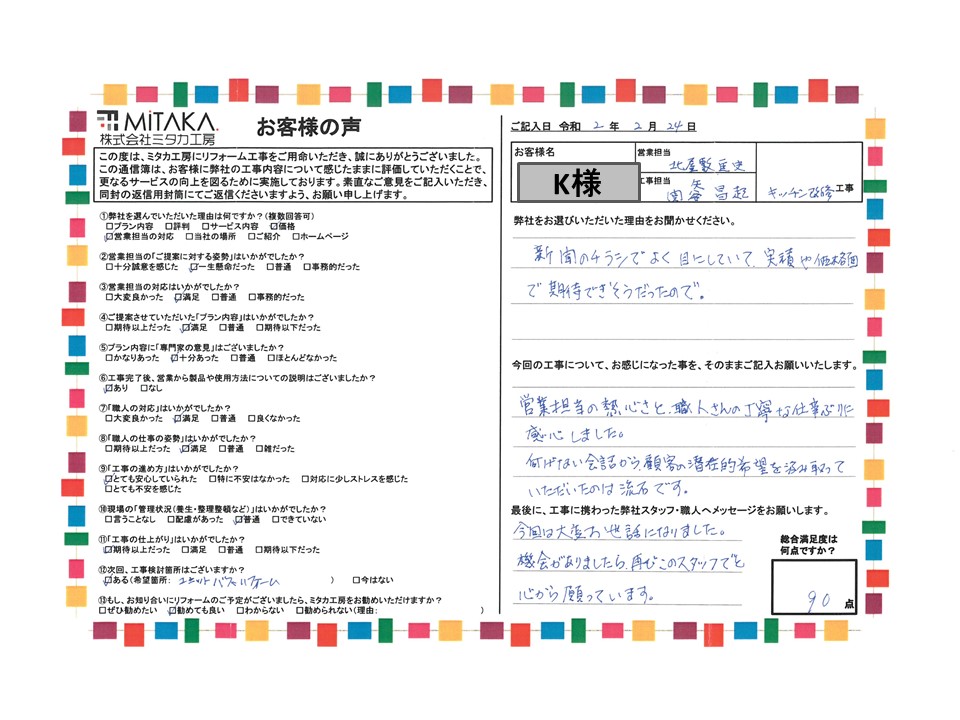 MiTAKA.
株式会社ミタカ工房
お客様の声
この度は、ミタカ工房にリフォーム工事をご用命いただき、誠にありがとうございました。
この通信簿は、お客様に弊社の工事内容について感じたままに評価していただくことで、
更なるサービスの向上を図るために実施しております。素直なご意見をご記入いただき、
同封の返信用封筒にてご返信くださいますよう、お願い申し上げます。
①弊社を選んでいただいた理由は何ですか？(複数回答可)
□プラン内容 □評判 □サービス内容 ☑価格
☑営業担当の対応 □当社の場所 □ご紹介 □ホームページ
②営業担当の「ご提案に対する姿勢」はいかがでしたか？
□十分誠意を感じた ☑一生懸命だった □普通 □事務的だった
③営業担当の対応はいかがでしたか？
□大変良かった ☑満足 □普通 □事務的だった
④ご提案させていただいた「プラン内容」はいかがでしたか？
□期待以上だった ☑満足 □普通 □期待以下だった
⑤プラン内容に「専門家の意見」はございましたか？
□かなりあった ☑十分あった □普通 □ほとんどなかった
⑥工事完了後、営業から製品や使用方法についての説明はございましたか？
☑あり □なし
⑦「職人の対応」はいかがでしたか？
□大変良かった ☑満足 □普通 □良くなかった
⑧「職人の仕事の姿勢」はいかがでしたか？
□期待以上だった ☑満足 □普通 □雑だった
⑨「工事の進め方」はいかがでしたか？
☑とても安心していられた □特に不安はなかった □対応に少しストレスを感じた
□とても不安を感じた
⑩現場の「管理状況(養生・整理整頓など)」はいかがでしたか？
□言うことなし □配慮があった ☑普通 □できていない
⑪「工事の仕上がり」はいかがでしたか？
☑期待以上だった □満足 □普通 □期待以下だった
⑫次回、工事検討箇所はございますか？
☑ある(希望箇所: ユニットバスリフォーム ) □今はない
⑬もし、お知り合いにリフォームのご予定がございましたら、ミタカ工房をお勧めいただけますか？
□ぜひ勧めたい ☑勧めても良い □わからない □勧められない(理由: )
ご記入日 令和 2 年 2 月 24 日
お客様名
K様
営業担当
北屋敷
工事担当
昌起
キッチン改修工事
弊社をお選びいただいた理由をお聞かせください。
新聞のチラシでよく目にしていて、実績や価格面
で期待できそうだったので。
今回の工事について、お感じになった事を、そのままご記入お願いいたします。
営業担当の熱心さと、職人さんの丁寧な仕事ぶりに
感心しました。
何げない会話から、顧客の潜在的希望を汲み取って
いただいたのは流石です。
最後に、工事に携わった弊社スタッフ・職人へメッセージをお願いします。
今回は大変お世話になりました。
機会がありましたら、再びこのスタッフでと
心から願っています。
総合満足度は
何点ですか？
90 点